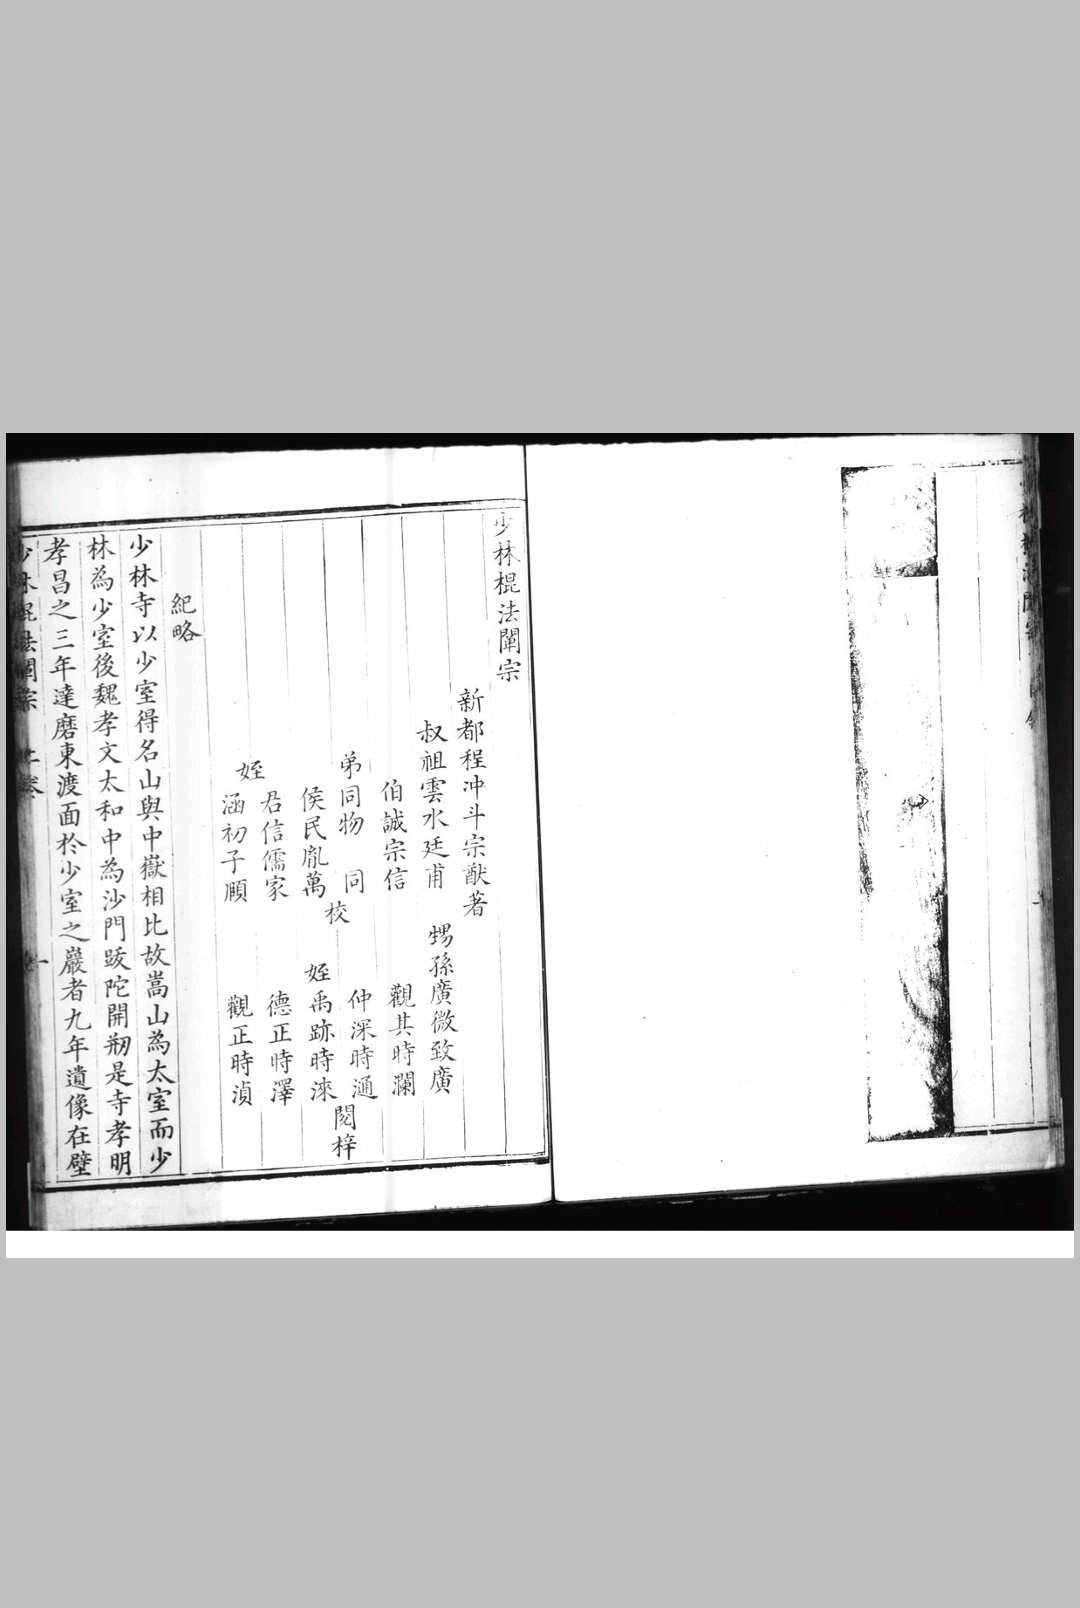 少林棍法闡宗
新都程冲斗宗猷著
叔祖雲水廷甫
甥孫廣微致廣
伯誠宗信
觀其時瀾
弟同物
仲深時通
同校
閱梓
侯民胤萬
姪禹跡時淶
君信儒家
德正時澤
姪
涵初子頤
觀正時湞
紀略
少林寺以少室得名山與中嶽相比故嵩山為太室而少
林為少室後魏孝文太和中為沙門跋陀開剏是寺孝明
孝昌之三年達磨東渡面於少室之巖者九年遺像在壁
少林棍法闡宗 上卷 一